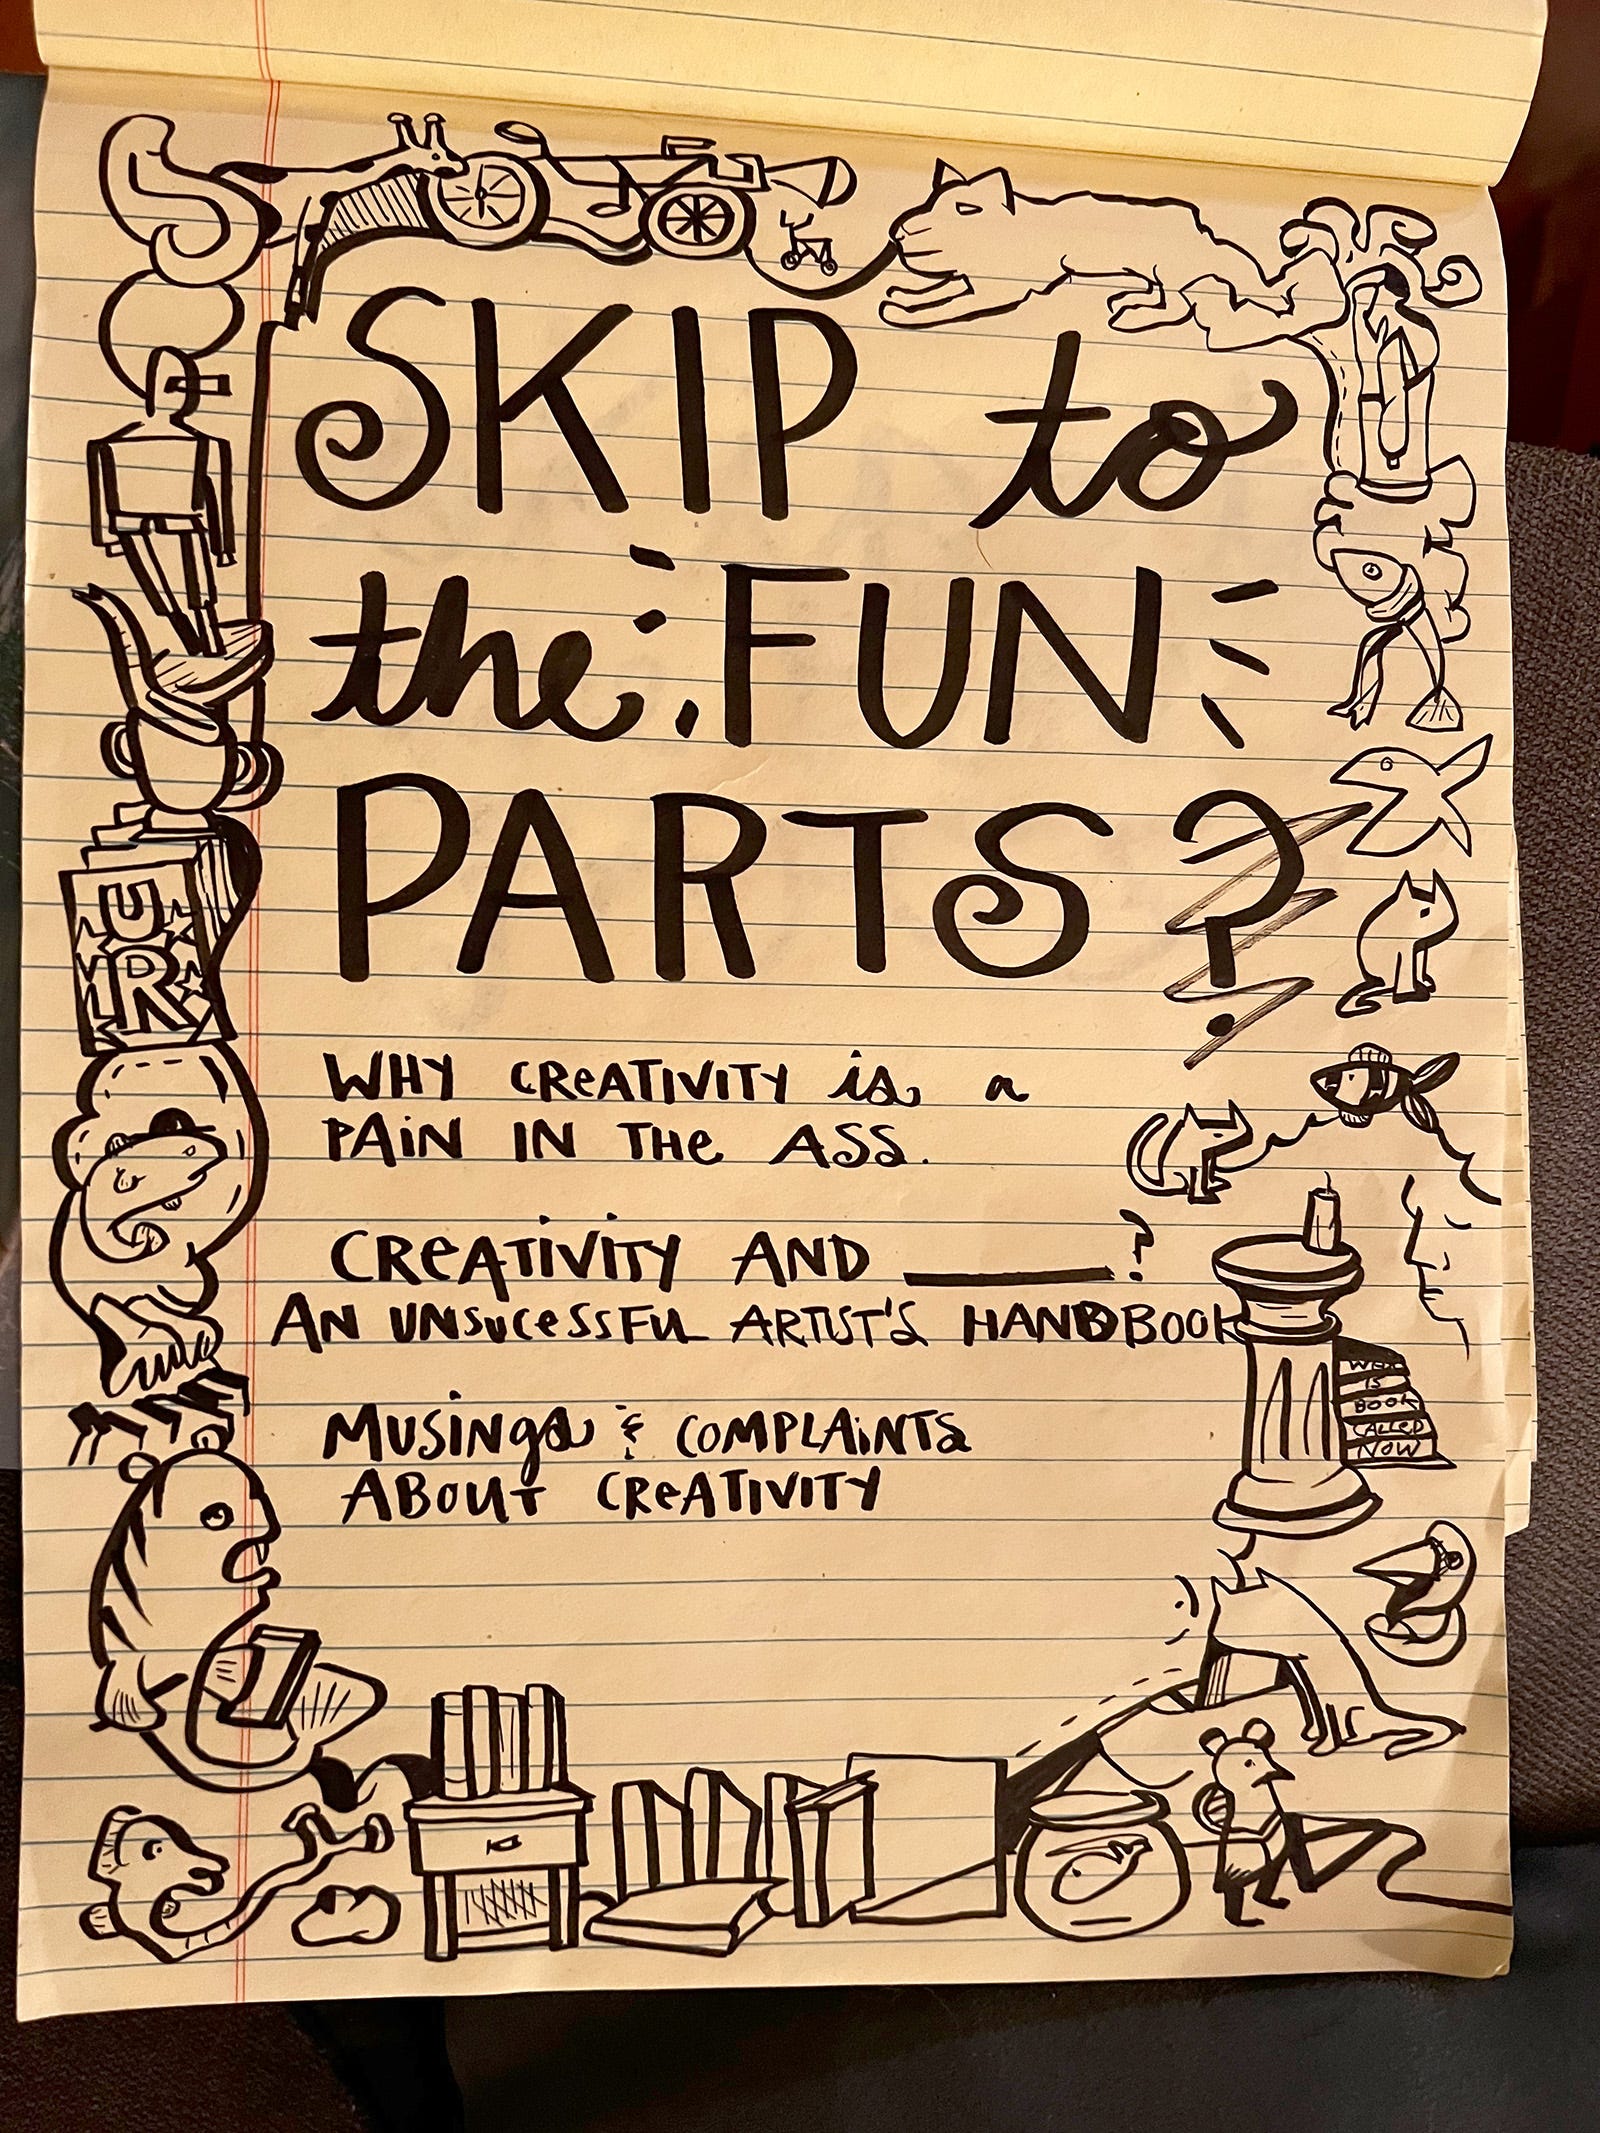 SKIP to
the FUN
PARTS?
WHY CREATIVITY is a
PAiN IN THe ASS.
CREATIVITY AND ______?
AN UNSUCESSFUL ARTIST'S HANDBOOK
MUSINgs & COMPLAiNTS
ABOUT CREATIVITY
U
R
IS
BOOK
CALLED
NOW